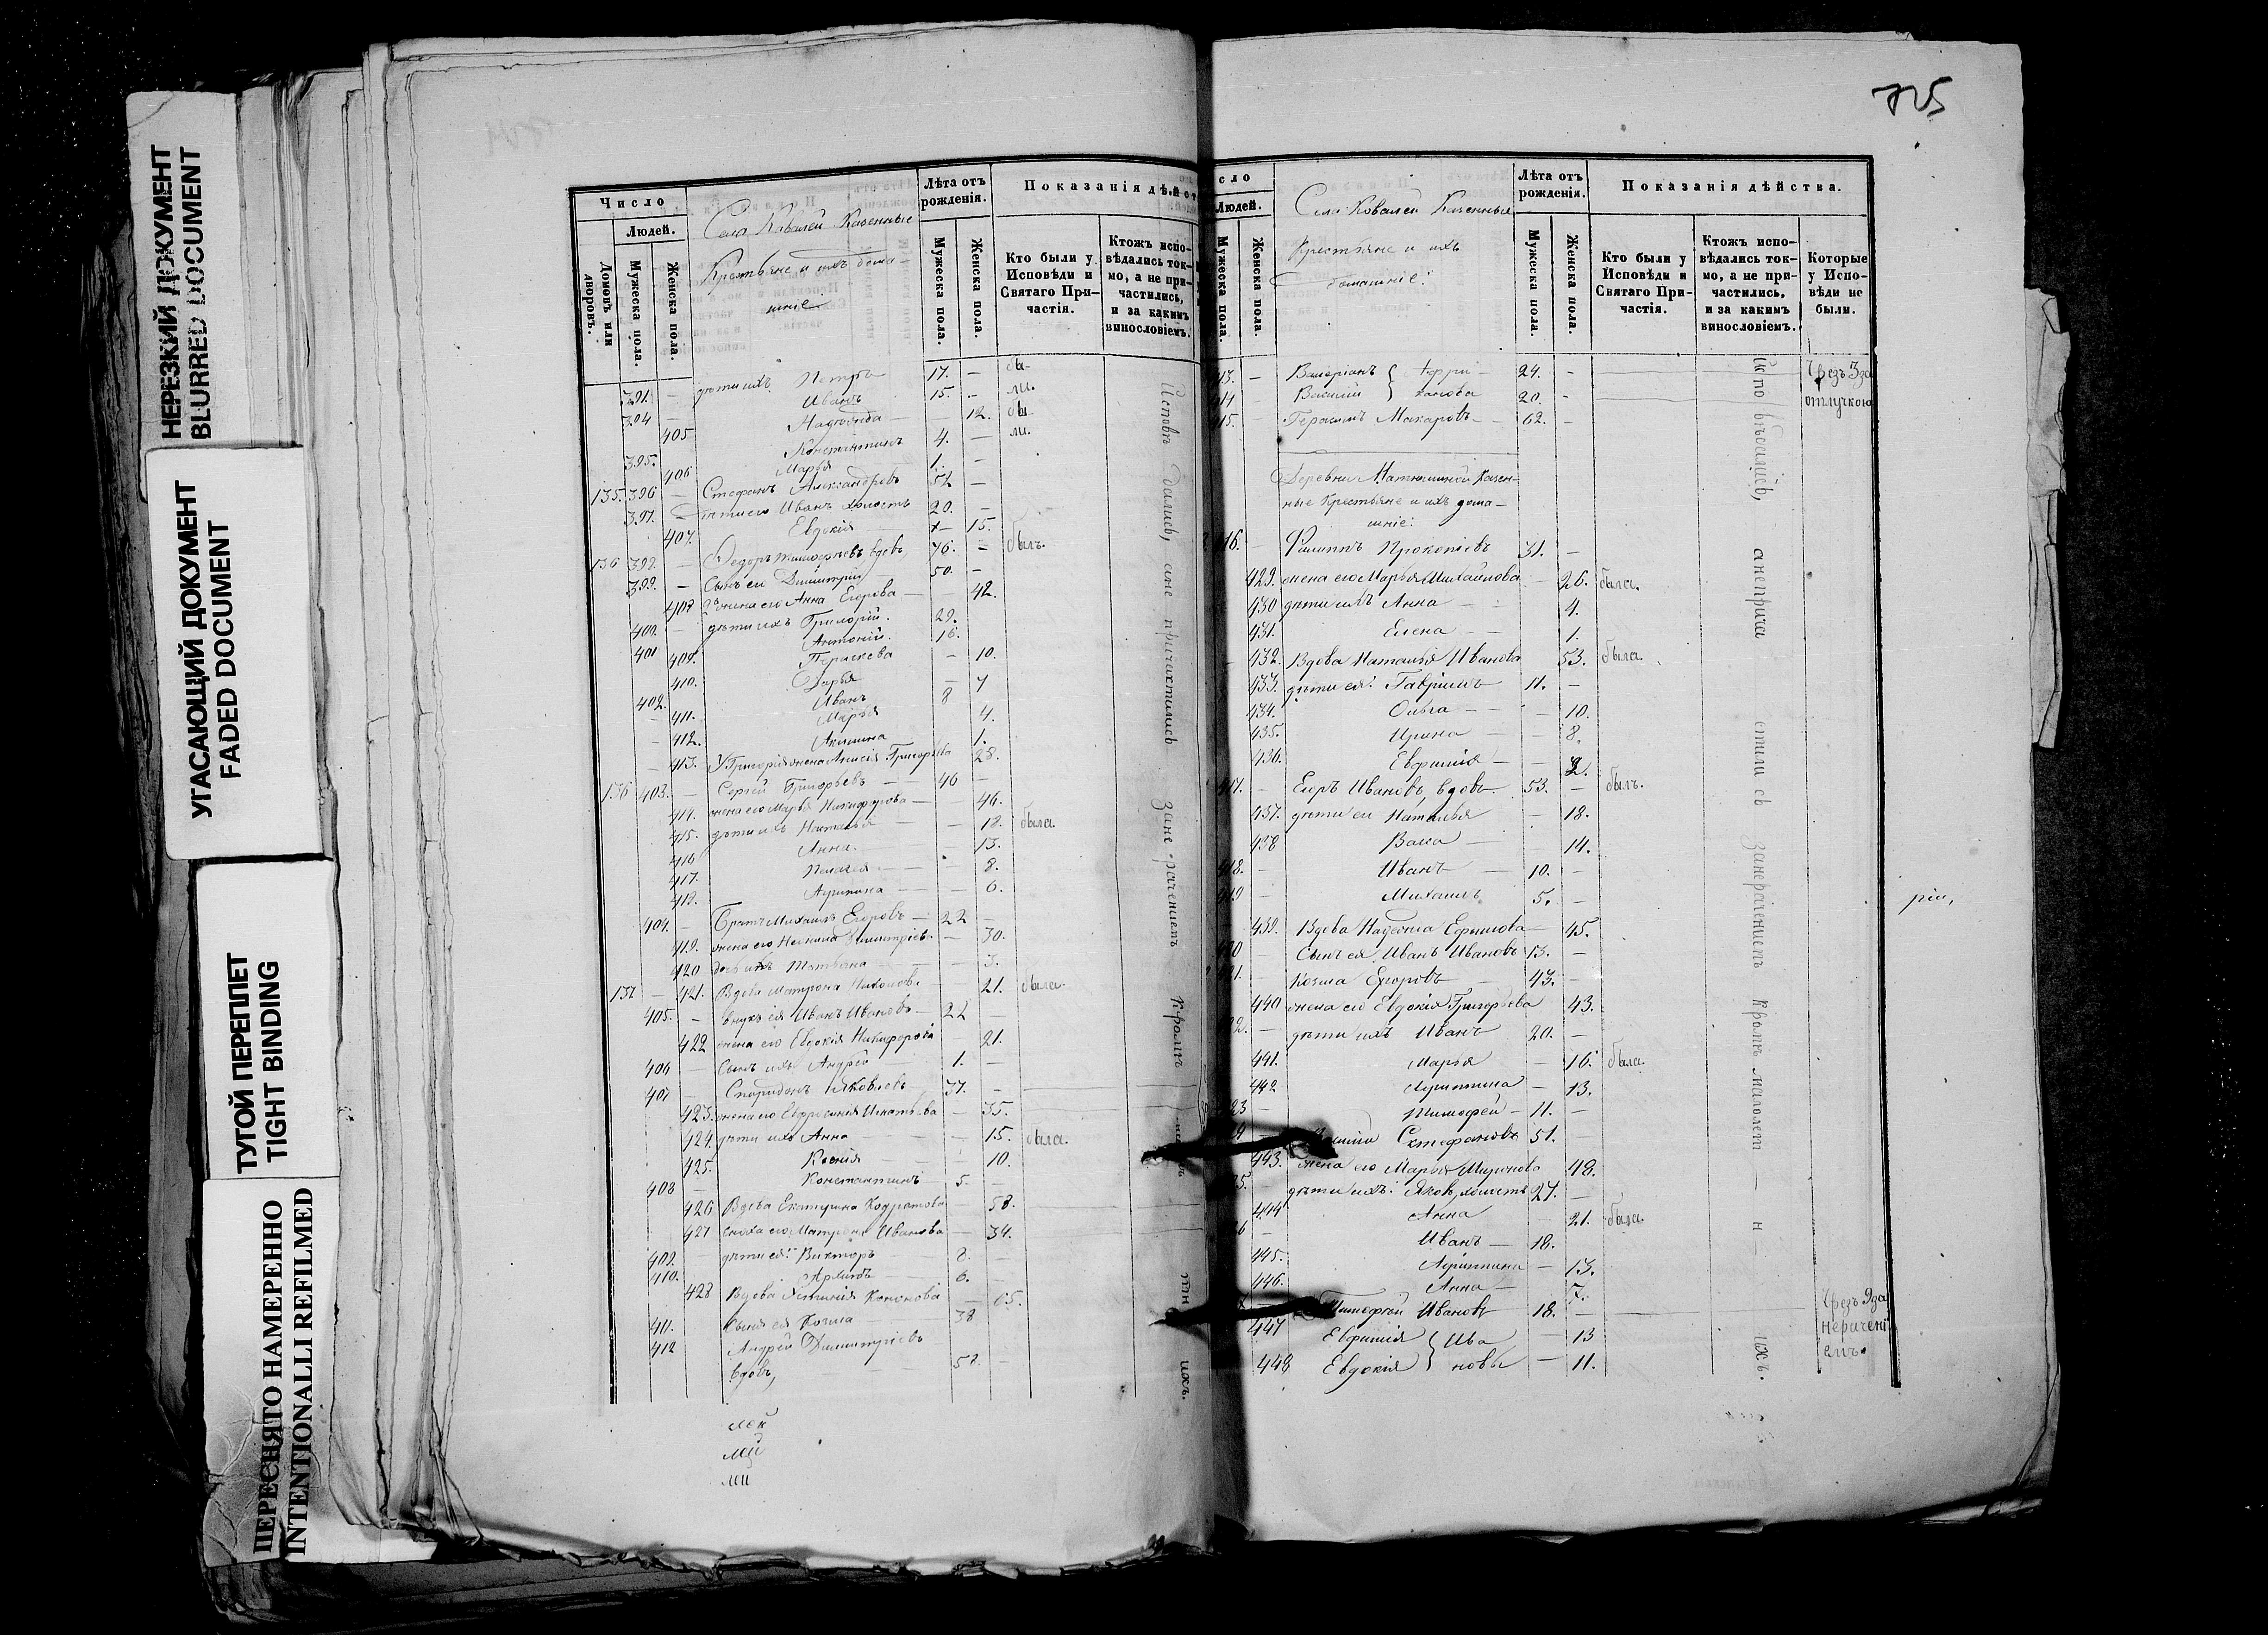 НЕРЕЗКИЙ ДОКУМЕНТ
BLURRED DOCUMENT
УГАСАЮЩИЙ ДОКУМЕНТ
FADED DOCUMENT
ТУГОЙ ПЕРЕПЛЕТ
TIGHT BINDING
ПЕРЕСНЯТО НАМЕРЕННО
INTENTIONALLI REFILMED
Число
Людей.
Домовъ или дворовъ.
Мужеска пола.
Женска пола.
Села Ковалей Казенные
Крестьяне и ихъ дома-
шніе
Лѣта отъ рожденія.
Мужеска пола.
Женска пола.
Показанія дѣйст
Кто были у Исповѣди и Святаго При-частія.
Ктожъ испо-вѣдались ток-мо, а не при-частились, и за какимъ винословіемъ.
391. — дѣти ихъ Петръ 17. — бы-
394 Иванъ 15. — ли.
405 Надежда — 12. бы
395. Константинъ 4. — ли.
406 Марья 1. —
135. 396 — Стефанъ Александровъ 52 —
397. — дѣти его Иванъ холостъ 20. —
407. Евдокія — 15.
136 398. — Федоръ вдовъ 76. — былъ.
399. — Сынъ его Димитрій 50. —
408 жена его Анна Егорова — 42.
400. — дѣти ихъ Григорій. 29.
401 Антоній. 16.
409. Параскева — 10.
410. Дарья — 7
402. Иванъ 8
411. Марья 4.
412. Акилина 1.
413. У Григорія жена Анисія Григорьева 28.
136 403. — Сергѣй Григорьевъ — 46 —
414. жена его Марья Никифорова — 46.
415. дѣти ихъ Наталья — 18. была.
416 Анна. 15.
417. Пелагея — 8.
418. Агрипина — 6.
404. — Братъ Михаилъ Егоровъ — 22 —
419. жена его — 30.
420 дочь ихъ Татьяна — 3.
137 — 421. Вдова Матрона — 21. была.
405. — внукъ ея Иванъ Ивановъ — 22 —
422 жена его Евдокія Никифорова — 21.
406 — Сынъ ихъ Андрей — 1. —
407 — Спиридонъ Яковлевъ 37. —
423. жена его Ефросинія Игнатьева — 35.
424. дѣти ихъ Анна — 15. была.
425. Ксенія — 10.
408 — Константинъ — 5. —
426 Вдова Екатерина Кодратова — 58.
427 сноха его Матрона Иванова — 34.
409. — дѣти ея: Викторъ — 8. —
410. 6. —
428 Вдова Кононова — 65.
411. Сынъ ея Козма 38
412 Андрей Димитріевъ
вдовъ, 58. —
Исповѣ дались, а не причастились за не рачениемъ Кромѣ ихъ.
725
сло
Людей.
Мужеска пола.
Женска пола.
Села Ковалей Казенные
Крестьяне и ихъ
домашніе.
Лѣта отъ рожденія.
Мужеска пола.
Женска пола.
Показанія дѣйства.
Кто были у Исповѣди и Святаго При-частія.
Ктожъ испо-вѣдались ток-мо, а не при-частились, и за какимъ винословіемъ.
Которые у Испо-вѣди не были.
13. — Валеріанъ 24. —
14 Василій 20. — отлучкою
15. — Герасимъ Макаровъ — 62. —
Деревни Казен-
ные Крестьяне и ихъ дома-
шніе:
16. — Филиппъ Прокопіевъ 31. —
429. жена его Марья Михайлова — 26. была.
430 дѣти ихъ Анна — 4.
431. Елена — 1.
432. Вдова Наталья Иванова 53. была.
433. дѣти ея: Гавріилъ 11. —
434. Ольга — 10.
435. Ирина — 8.
436. Евфимія — 2.
417. — Егоръ Ивановъ, вдовъ. 53. — былъ.
437. дѣти его Наталья — 18.
438 Васса — 14.
418. — Иванъ — 10. —
419 — Михаилъ 5. —
439. Вдова Надежда Ефимова — 45.
420 — Сынъ ея, Иванъ Ивановъ 13. —
421. — Козма Егоровъ — 43. —
440 жена его Евдокія Григорьева 43.
22. — дѣти ихъ Иванъ 20. —
441. Марья — 16. была.
442 Агрипина — 13.
23 — Тимофей — 11. —
24 Стефановъ 51. —
443. жена его Марья 48.
25. дѣти ихъ: Яковъ, холостъ 27. —
444 Анна — 21. была.
26 — Иванъ — 18.
445. Агрипина — 13.
446. Анна — 7.
Тимофей Ивановъ 18. — Чрезъ
447 Евфимія } Ива — 13 нерачені
448 Евдокія } новы — 11. емъ.
Испо вѣдались, а не прича стились за нерачениемъ Кромѣ малолет — н — ихъ.